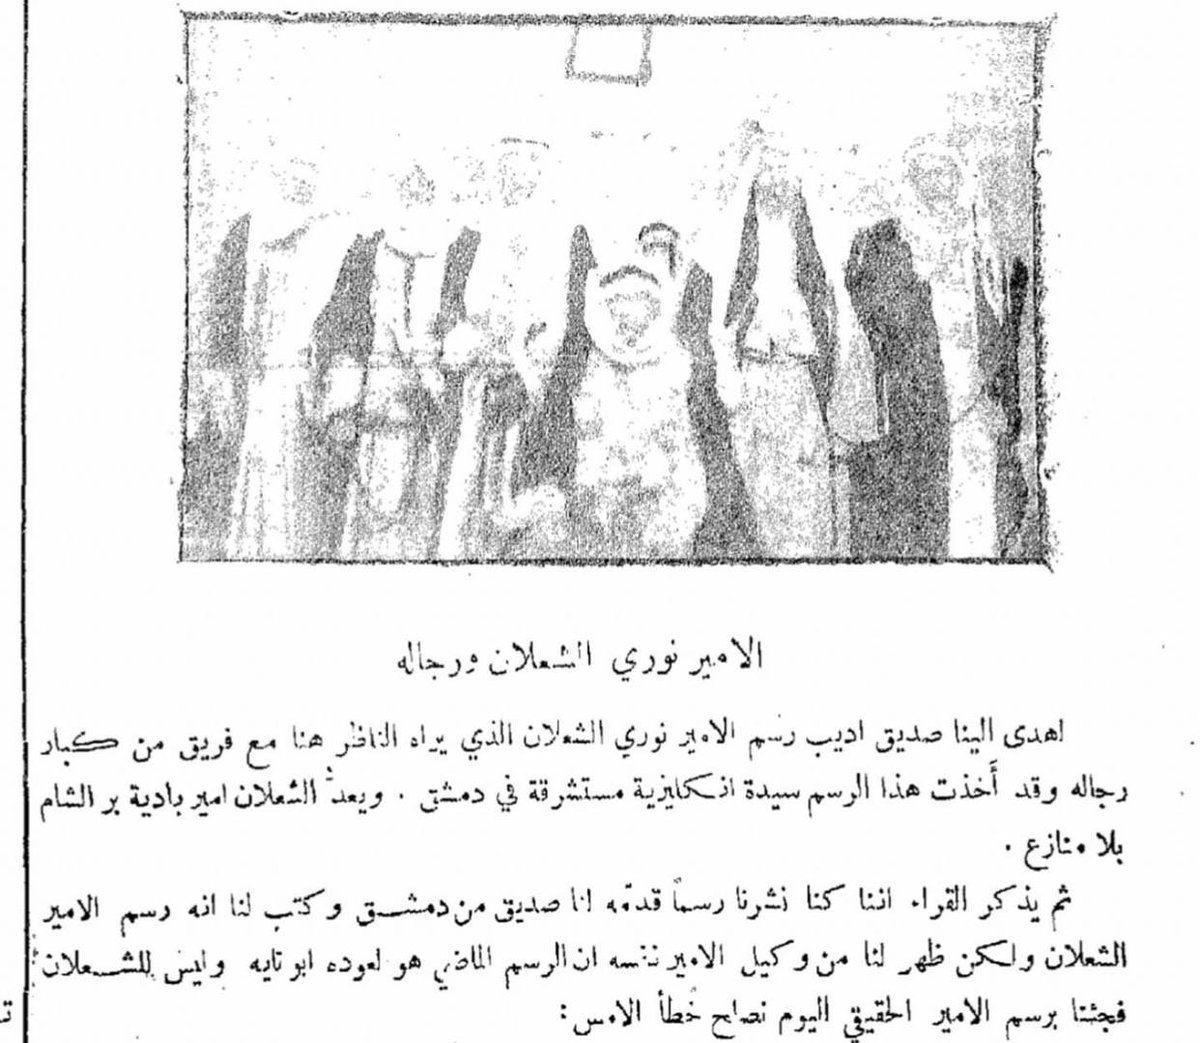 الامير نوري الشعلان ورجاله
اهدى الينا صديق اديب رسم الامير نوري الشعلان الذي يراه الناظر هنا مع فريق من كبار
رجاله وقد أخذت هذا الرسم سيدة انكليزية مستشرقة في دمشق . ويعدّ الشعلان امير بادية بر الشام
بلا منازع .
ثم يذكر القراء اننا كنا نشرنا رسماً قدمّه لنا صديق من دمشق وكتب لنا انه رسم الامير
الشعلان ولكن ظهر لنا من وكيل الامير نفسه ان الرسم الماضي هو لعوده ابو تايه وليس للشعلان
فجئنا برسم الامير الحقيقي اليوم نصلح خطأ الامس :